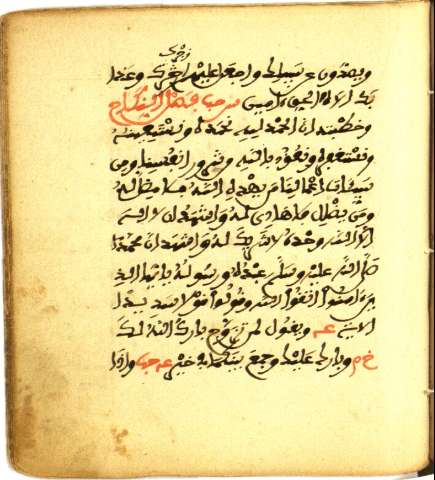 رجزك
ويصدون عن سبيلك واجعل عليهم وعذا
بك الاه الحق امين حب فصل النكاح
وخطبته ان الحمد لله نحمده ونستعينه
ونستغفره ونعوذ بالله من شرور انفسنا ومن
سيئات اعمالنا من يهده الله فلا مضل له
ومن يضلل فلا هادي له واشهد ان لا اله
الا الله وحده لا شريك له واشهد ان محمدا
صلى الله عليه وسلم عبده ورسوله يا ايها الذ
ين امنوا اتقوا الله وقولوا قولا سديدا
الاية عه ويقول لمن تزوج بارك الله لك
خ م وبارك عليك وجمع بينكما في خير عه حب واذا